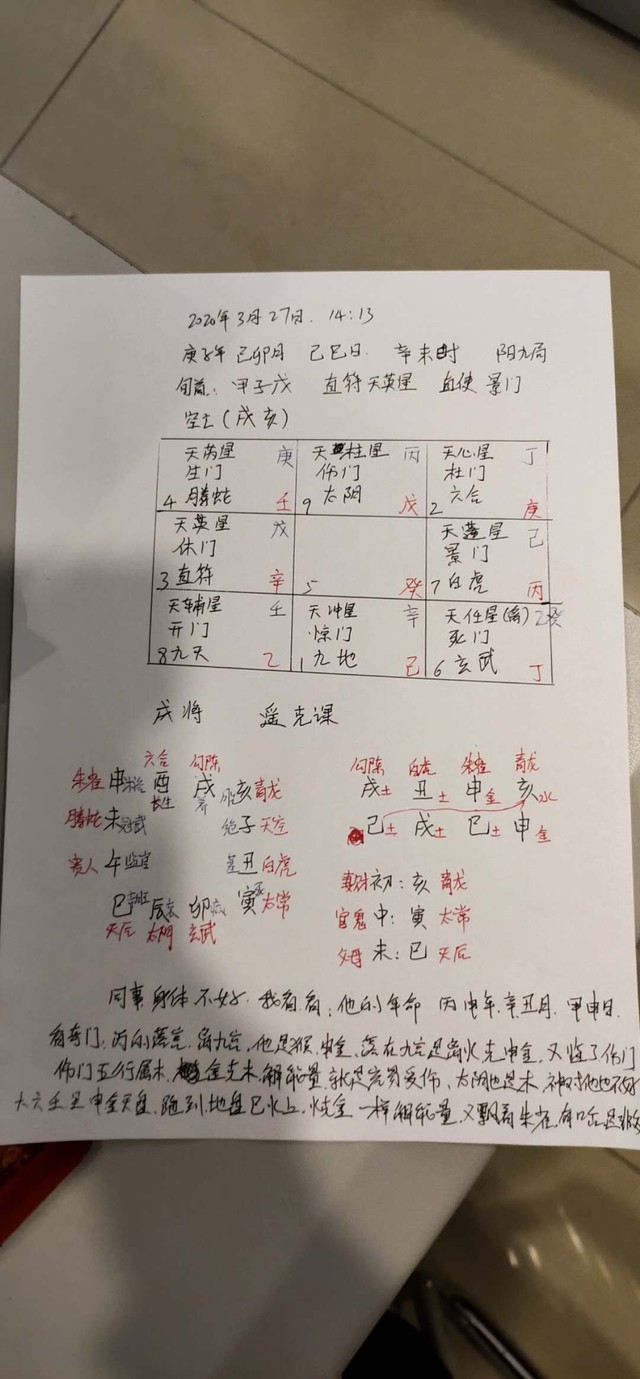 2020年3月27日. 14:13
庚子年 己卯月 己巳日. 辛未时 阳九局
旬首: 甲子戊 直符天英星 直使 景门
空亡(戌亥)
天芮星 庚 天柱星 丙 天心星 丁
生门 伤门 杜门
4 腾蛇 壬 9 太阴 戊 2 六合 庚
天英星 戊 天蓬星 己
休门 景门
3 直符 辛 5 癸 7 白虎 丙
天辅星 壬 天冲星 辛 天任星(禽) 乙癸
开门 惊门 死门
8 九天 乙 1 九地 己 6 玄武 丁
戌将 遥克课
六合 勾陈
朱雀 申 酉 戌 亥 青龙
长生 养
腾蛇 未 子 天空
贵人 午 丑 白虎
巳 辰 卯 寅 太常
天后 太阴 玄武
勾陈 白虎 朱雀 青龙
戌土 丑土 申金 亥水
己土 戌土 巳土 申金
妻财 初: 亥 青龙
官鬼 中: 寅 太常
父母 末: 巳 天后
同事身体不好. 我看看, 他的年命 丙申年, 辛丑月, 甲申日.
看奇门, 丙的落宫, 离九宫, 他是猴, 申金, 落在九宫是离火克申金, 又临了伤门
伤门五行属木, 金克木 能量 就是容易受伤, 太阴也是木, 神对他也不好
大六壬里申金天盘, 跑到地盘巳火上, 火克金 一样 能量, 又飘着朱雀, 有口舌是非